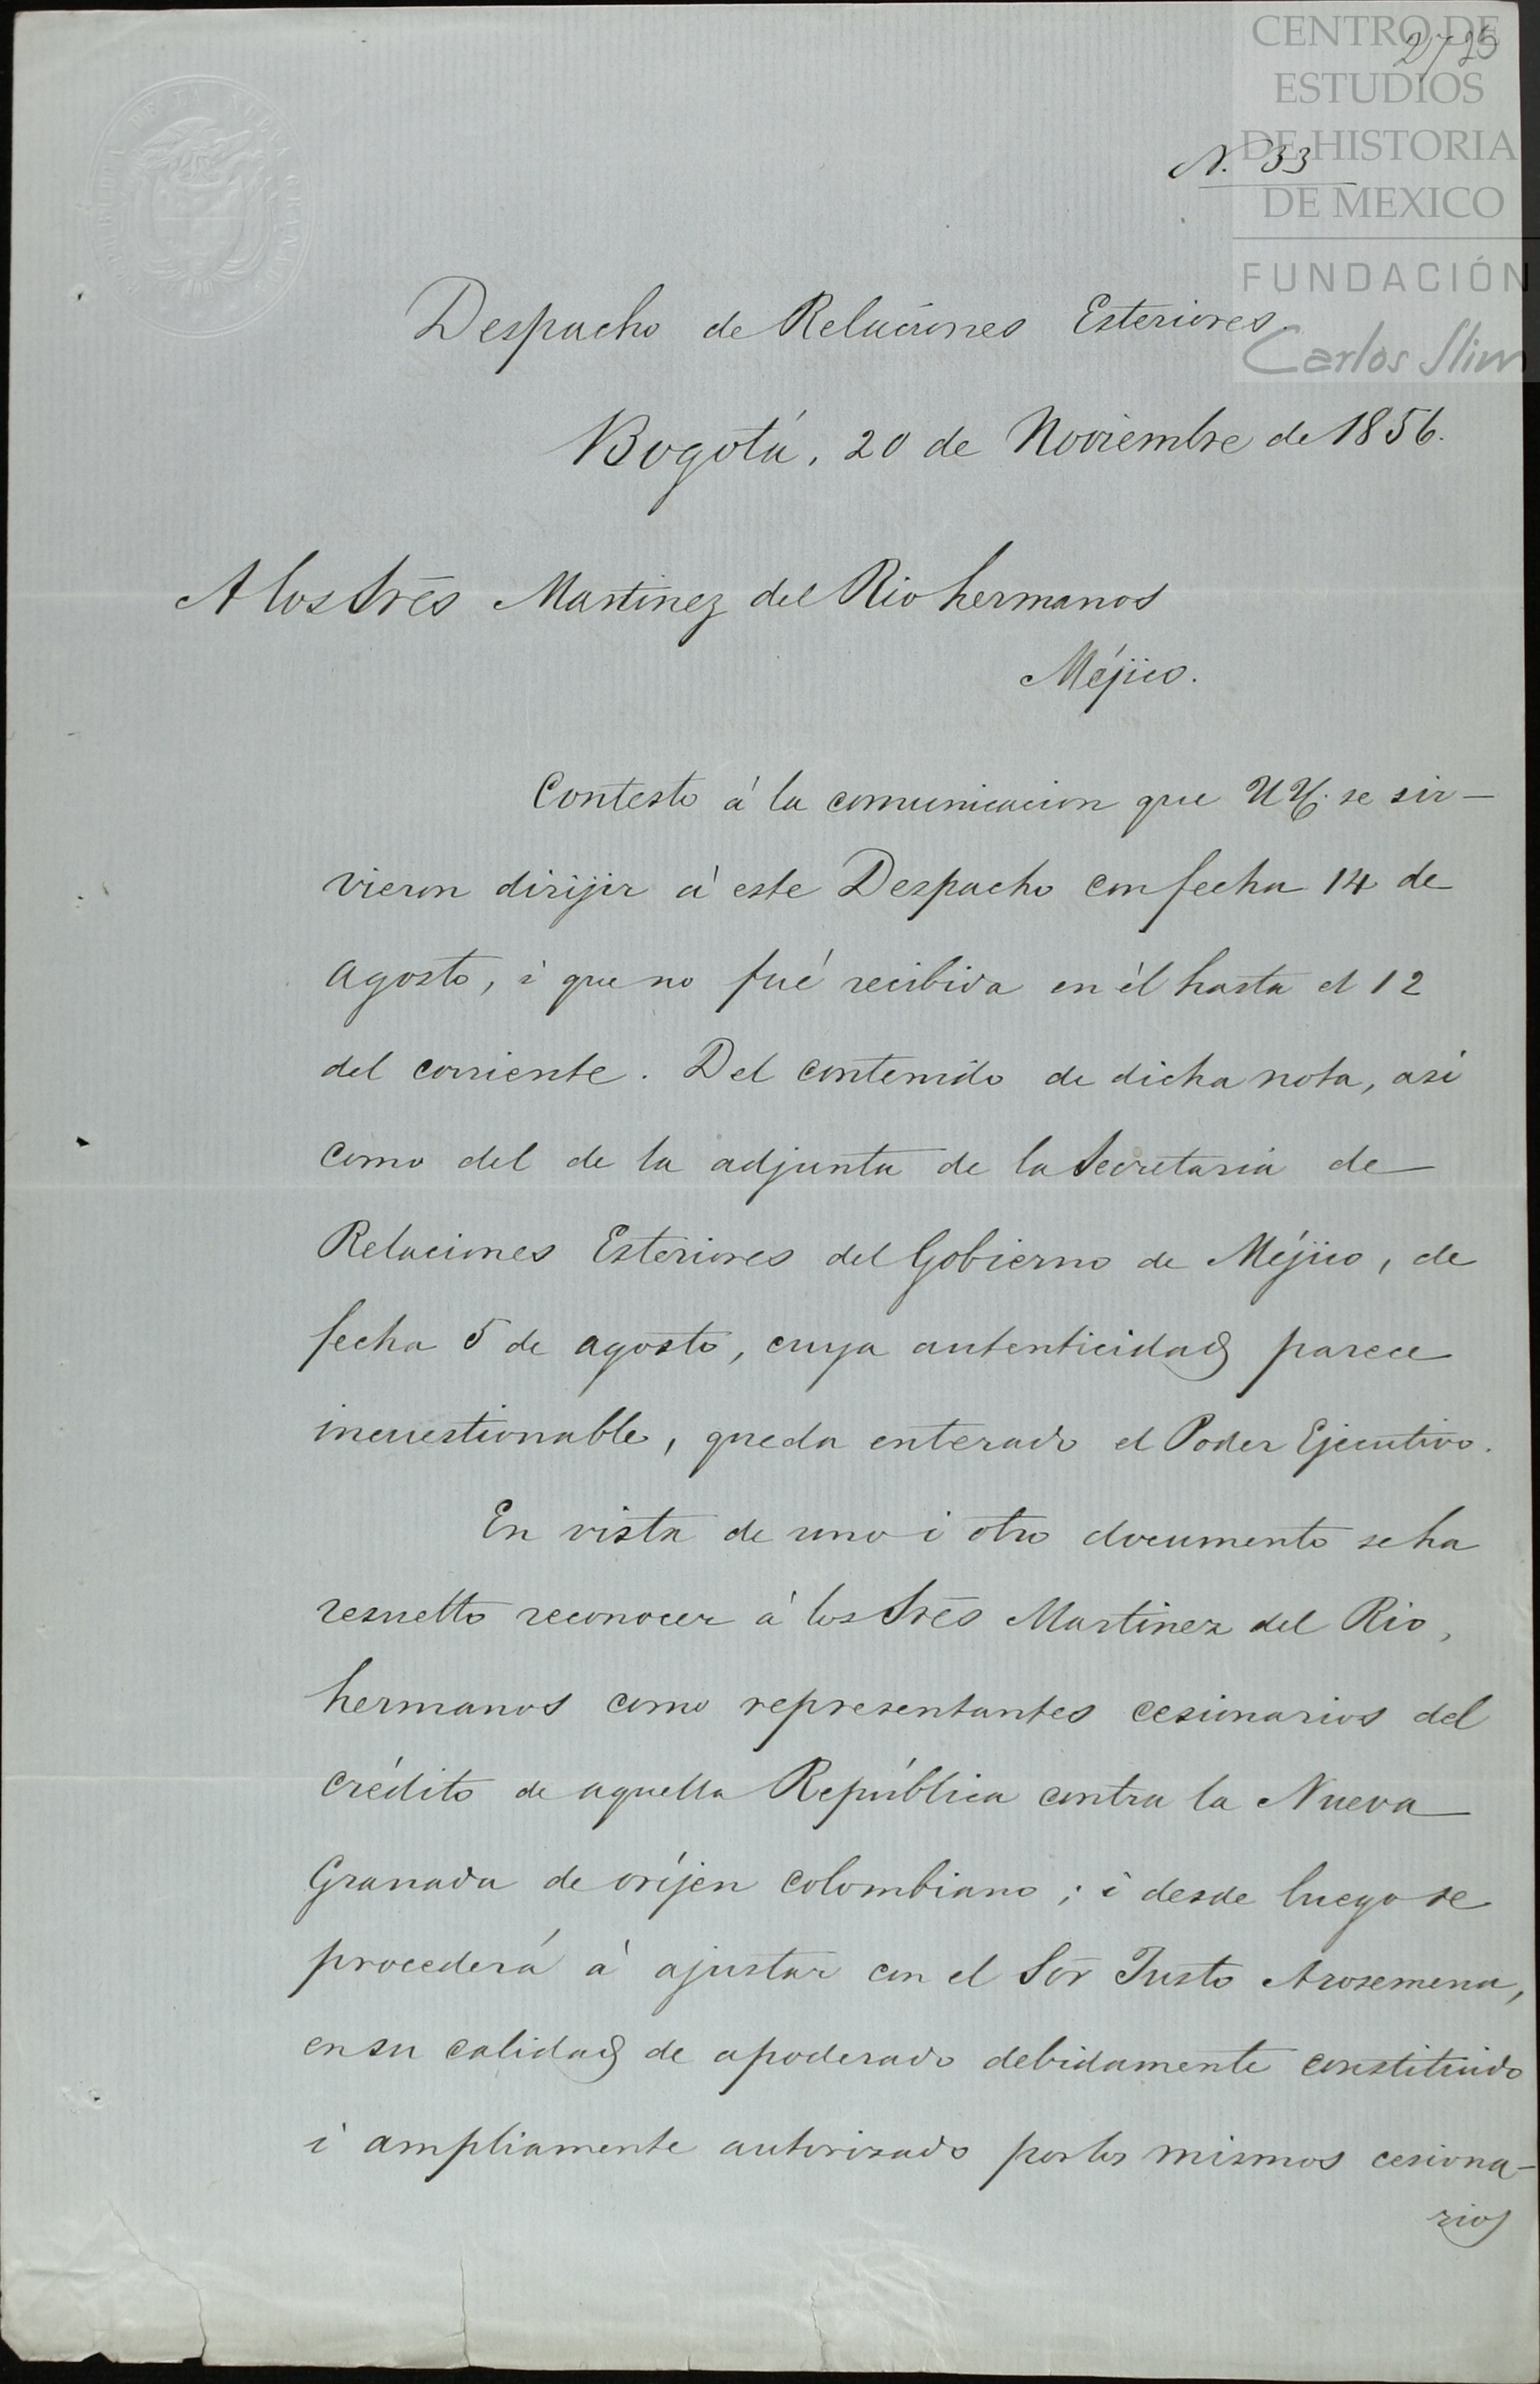 CENTRO DE
ESTUDIOS
DE HISTORIA
DE MEXICO
FUNDACIÓN
Carlos Slim
N. 33
Despacho de Relaciones Esteriores.
Bogotá, 20 de Noviembre de 1856.
A los Sres Martinez del Rio hermanos
Méjico.
Contesto á la comunicacion que UU. se sir-
vieron dirijir á este Despacho con fecha 14 de
agosto, i que no fué recibida en él hasta el 12
del corriente. Del contenido de dicha nota, así
como del de la adjunta de la Secretaria de
Relaciones Esteriores del Gobierno de Méjico, de
fecha 5 de agosto, cuya autenticidad parece
incuestionable, queda enterado el Poder Ejecutivo.
En vista de uno i otro documento se ha
resuelto reconocer á los Sres Martinez del Rio,
hermanos como representantes cesionarios del
crédito de aquella República contra la Nueva
Granada de oríjen colombiano; i desde luego se
procederá á ajustar con el Sor Justo Arosemena,
en su calidad de apoderado debidamente constituido
i ampliamente autorizado por los mismos cesiona-
rios